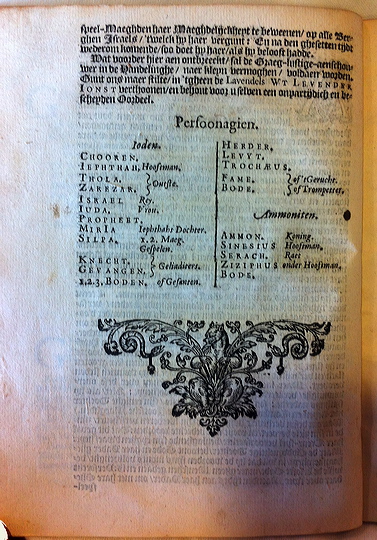 speel-Maeghden haer Maeghdelijckheyt te beweenen/ op alle Ber-
ghen Israels/ 'twelck hy haer vergunt: En na den ghesetten tijdt
wederom komende/ soo doet hy haer/ als hy belooft hadde.
Wat voorder hier aen ontbreeckt/ sal de Graeg-lustige-aenschou-
wer in de Handelinghe/ naer kleyn vermoghen/ voldaen worden.
Gunt ons maer stilte/ in 'tgheen de Lavendels WT LEVENDER
IONST verthoonen/ en behout voor u selven een onpartijdich en be-
scheyden Oordeel.
Persoonagien.
Ioden.
CHOOREN.
IEPHTHAH, Hooftman.
THOLA.
ZAREZAR.
} Outste.
ISRAEL Rey.
IUDA. Vrou.
PROPHEET.
MIRIA Iephthahs Dochter.
SILPA. 1. 2. Maeg.
Gespelen.
KNECHT.
GEVANGEN.
} Geliadeers.
1,2,3, BODEN. of Gesanten.
HERDER.
LEVYT.
TROCHÆUS.
FAME.
BODE.
} of 't Gerucht.
of Trompetter.
Ammoniten.
AMMON. Koning.
SINESIUS Hooftman.
SERACH. Raet
ZIZIPHUS onder Hooftman.
BODE.